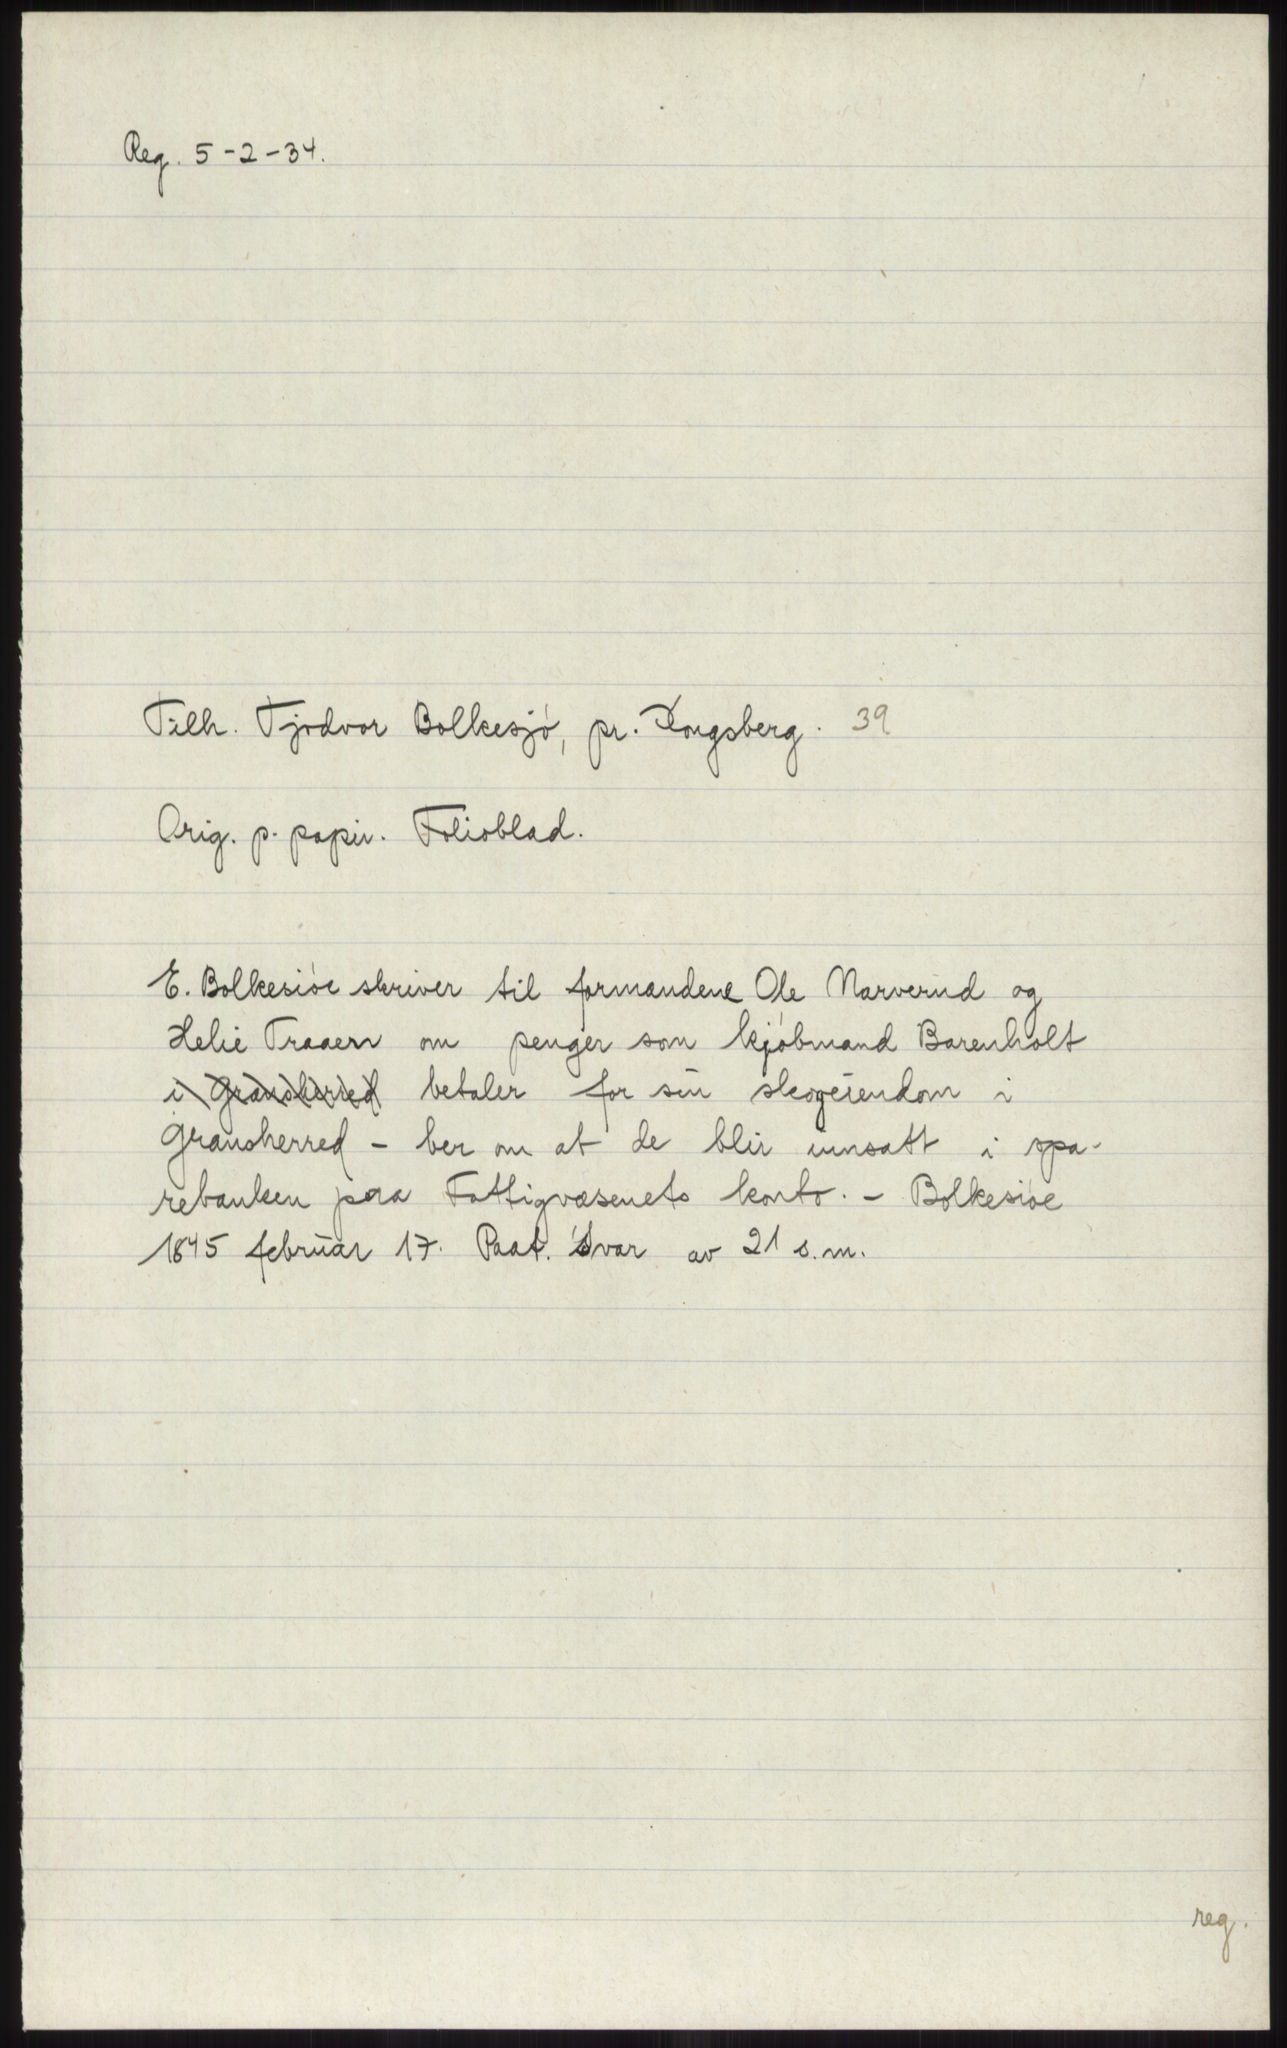 Reg. 5-2-34.
Tilh. Tjodvor Bolkesjö, pr. Kongsberg. 39
Orig. p. papir. Folioblad.
E. Bolkesiöe skriver til formandene Ole Narverud og
Helie Traaen om penger som kjöbmand Barenholt
i Gransherred betaler for sin skogeiendom i
Gransherred - ber om at de blir innsatt i spa-
rebanken paa Fattigvæsenets konto. - Bolkesiöe
1845 februar 17. Paat. svar av 21 s.m.
reg.